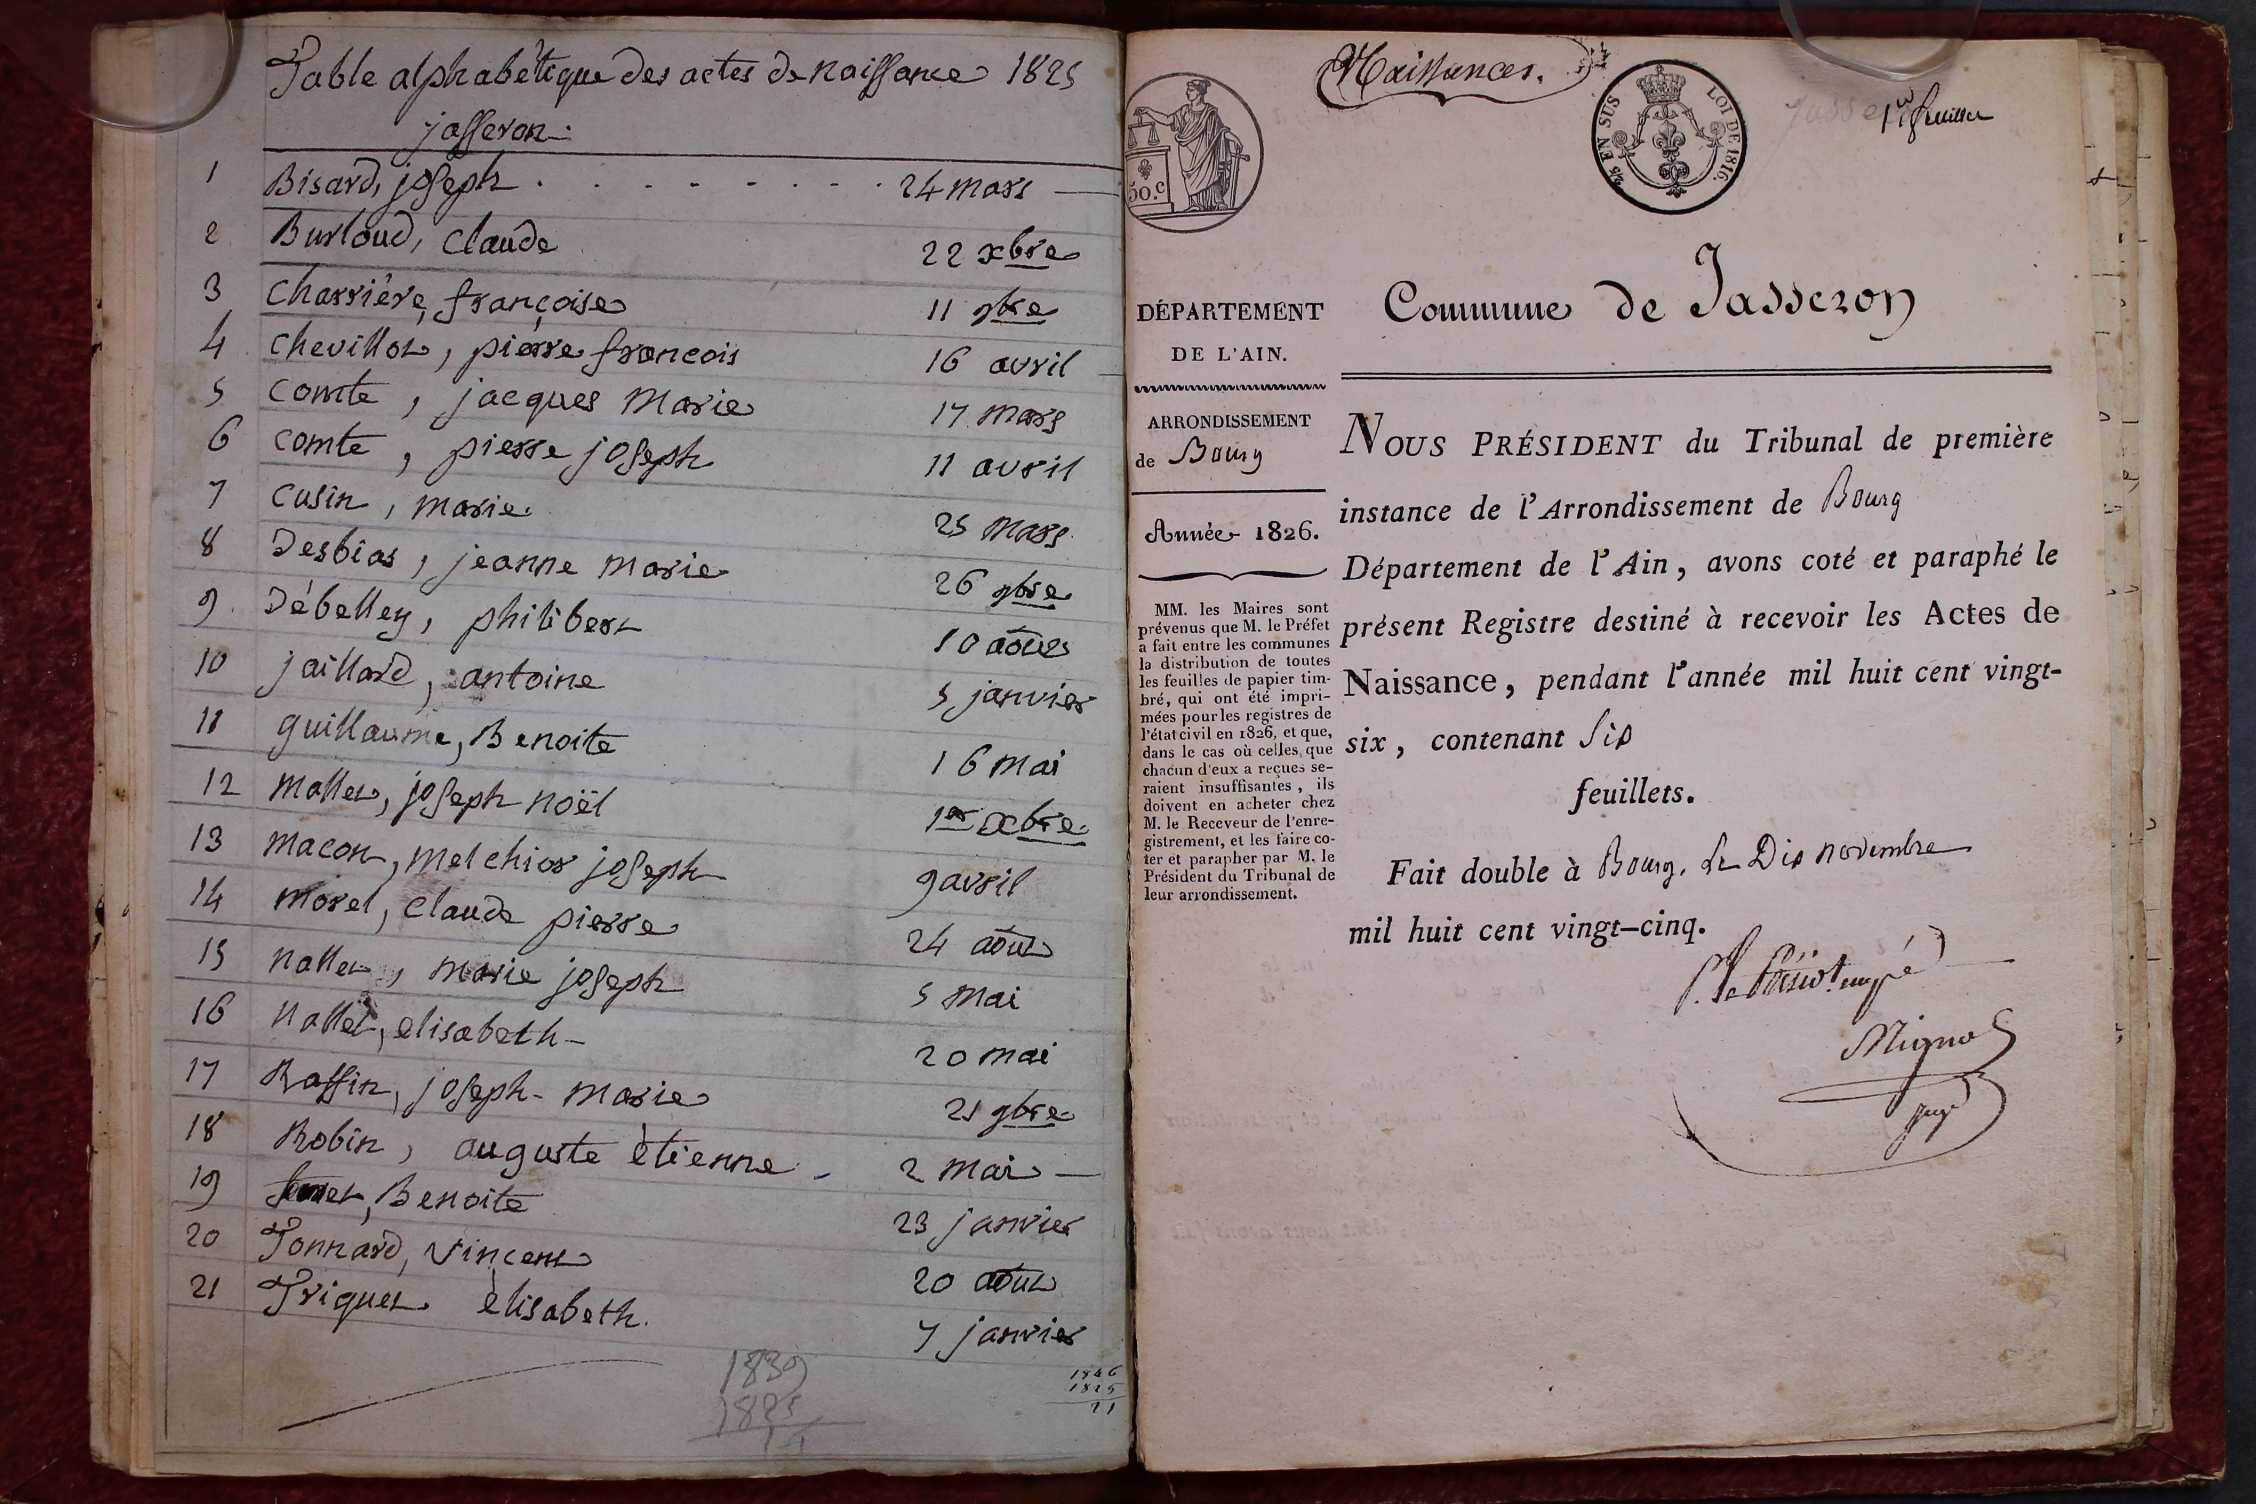 Table alphabétique des actes de naissance 1825
jasseron.
1 Bisard, joseph . . . . . . . . . 24 mars
2 Burloud, Claude 22 xbre
3 Charrière, françoise 11 9bre
4 Chevillot, pierre francois 16 avril
5 Comte, jacques Marie 17 mars
6 Comte, pierre joseph 11 avril
7 Cusin, marie. 25 mars
8 Desbias, jeanne marie 26 9bre
9. Débelley, philibert 10 août
10 jaillard, antoine 5 janvier
11 guillaume, Benoite 16 mai
12 Mallet, joseph noël 1er xbre
13 Macon, melchior joseph 9 avril
14 Morel, Claude pierre 24 août
15 Nallet, marie joseph 5 mai
16 Nallet, elisabeth 20 mai
17 Raffin, joseph-marie 21 9bre
18 Robin, auguste étienne 2 mai
19 Benoite 23 janvier
20 Tonnard, Vincent 20 août
21 Triquet élisabeth. 7 janvier
1839
1825
14
1846
1825
21
Naissances.
50.C
25 EN SUS LOI DE 1816.
1er feuillet
Commune de Jasseron
DÉPARTEMENT
DE L'AIN.
ARRONDISSEMENT
de Bourg
Année 1826.
MM. les Maires sont
prévenus que M. le Préfet
a fait entre les communes
la distribution de toutes
les feuilles de papier tim-
bré, qui ont été impri-
mées pour les registres de
l'état civil en 1826, et que,
dans le cas où celles, que
chacun d'eux a reçues se-
raient insuffisantes, ils
doivent en acheter chez
M. le Receveur de l'enre-
gistrement, et les faire co-
ter et parapher par M. le
Président du Tribunal de
leur arrondissement.
NOUS PRÉSIDENT du Tribunal de première
instance de l'Arrondissement de Bourg
Département de l'Ain, avons coté et paraphé le
présent Registre destiné à recevoir les Actes de
Naissance, pendant l'année mil huit cent vingt-
six, contenant Six
feuillets.
Fait double à Bourg, le Dix novembre
mil huit cent vingt-cinq.
P. le Présidt empé
Mignot
juge